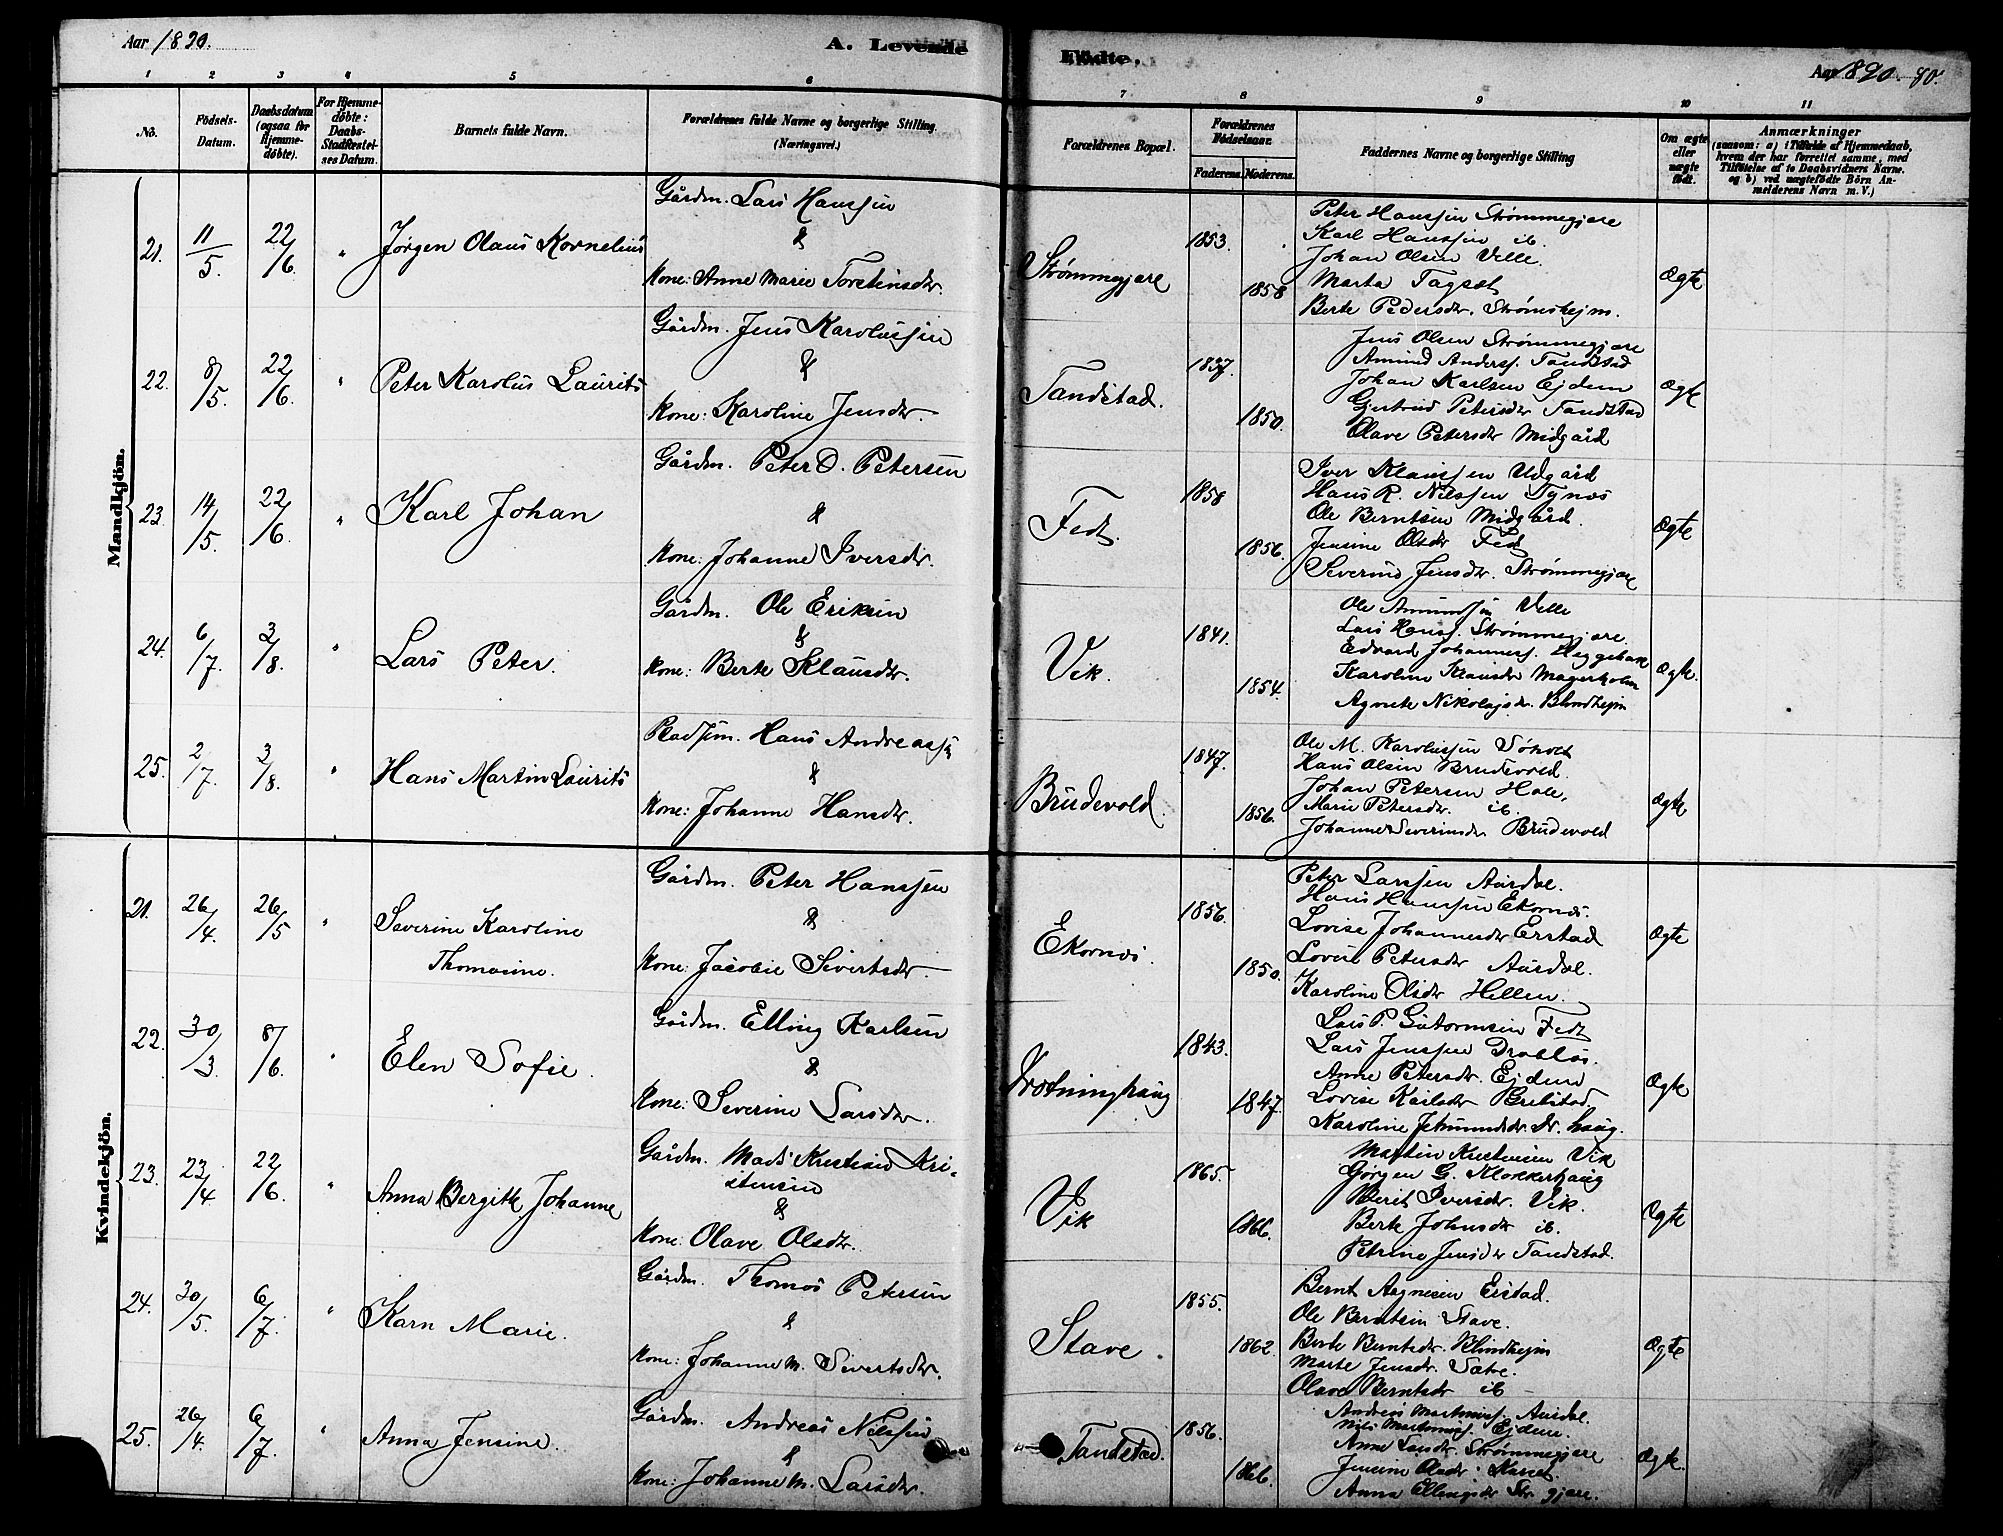 Aar 1890.
A. Levende
Födte.
Aar 1890. 90.
1 2 3 4 5 6 7 8 9 10 11
No.
Födsels-Datum.
Daabsdatum (ogsaa for Hjemme-døbte).
For Hjemme-døbte: Daabs-Stadfæstel-ses Datum.
Barnets fulde Navn.
Forældrenes fulde Navne og borgerlige Stilling.
(Næringsvei.)
Forældrenes Bopæl.
Forældrenes Födselsaar.
Faderens. Moderens.
Faddernes Navne og borgerlige Stilling
Om ægte eller uægte födt.
Anmærkninger
(saasom: a) i Tilfælde af Hjemmedaab,
hvem der har forrettet samme, med
Tilföielse af to Daabsvidners Navne.
og b) ved uægtefödte Börn An-
melderens Navn m. V.)
Mandkjön.
21. 11/5. 22/6. " Jørgen Olaus Kornelius
Gårdm. Lars Hanssen
&
Kone: Anne Marie Torstinsdtr.
Strømmegjære 1853. 1858
Peter Hanssen Strømmegjære
Karl Hanssen ib.
Johan Olsen Velle.
Marta Tagset
Berte Pedersdtr. Strømshejm.
Ægte
22. 8/5. 22/6. " Peter Karolus Laurits
Gårdm. Jens Karolussen
&
Kone: Karoline Jensdtr.
Tandstad. 1837. 1850.
Jens Olsen Strømmegjære
Amund Anders. Tandstad
Johan Karlsen Ejdem
Gjertrud Petersdtr Tandstad
Olave Petersdtr Midgård
Ægte
23. 14/5. 22/6. " Karl Johan
Gårdm. Peter O. Petersen
&
Kone: Johanne Iversdtr.
Fedt. 1858 1856.
Iver Klaussen Udgård
Hans R. Nilssen Tynes
Ole Berntsen Midgård.
Jensine Olsdtr Fedt
Severine Jensdtr. Strømmegjære
Ægte
24. 6/7. 3/8. " Lars Peter.
Gårdm. Ole Eriksen
&
Kone: Berte Klausdtr.
Vik. 1841. 1854.
Ole Amundsen Velle
Lars Hanss. Strømmegjære
Edvard Johanness. Heggebak
Karoline Klausdtr Magerholm
Agnete Nikolajsdtr. Blindhejm
Ægte.
25. 2/7. 3/8. " Hans Martin Laurits
Pladsm. Hans Andreassen
&
Kone: Johanne Hansdtr.
Brudevold. 1847. 1856.
Ole M. Karolussen
Hans Olsen Brudevold.
Johan Petersen Hole,
Marie Petersdtr. ib
Johanne Severinsdtr Brudevold
Ægte
Kvindekjön.
21. 26/4. 26/5 " Severine Karoline
Thomasine.
Gårdm. Peter Hanssen
&
Kone: Jacobie Sivertsdtr.
Ekornes. 1856. 1850.
Peter Larssen Aurdal.
Hans Hanssen Ekornes.
Lovise Johannesdtr Erstad
Lovise Petersdtr Aurdal.
Karoline Olsdtr Hellen.
Ægte
22. 30/3. 8/6. " Elen Sofie.
Gårdm. Elling Karlsen
&
Kone: Severine Larsdtr.
Drotninghaug 1843. 1847.
Lars P. Gutormsen Fedt
Lars Jenssen Drabløs.
Anne Petersdtr. Ejdem
Lovise Karlsdtr
Karoline Dr. haug.
Ægte
23. 23/4 22/6. " Anna Bergitte Johanne
Gårdm. Mads Kristian Kri-
stensen
&
Kone: Olave Olsdtr.
Vik 1865. 1866.
Martin Kristensen Vik
Gørgen G. Klokkerhaug
Berit Iversdtr. Vik.
Berte Johnsdtr ib.
Petrine Jensdtr Tandstad.
Ægte
24. 30/5. 6/7. " Karn Marie.
Gårdm. Thomas Petersen
&
Kone: Johanne M. Sivertsdtr.
Stave. 1855. 1862.
Bernt Erstad.
Ole Berntsen Stave.
Berte Berntsdtr. Blindhejm
Marte Jensdtr. Sætre.
Olave Berntsdtr ib
Ægte
25. 26/4. 6/7 " Anna Jensine.
Gårdm. Andreas Nilssen
&
Kone: Johanne M. Larsdtr.
Tandstad. 1856. 1866.
Andreas Martinuss. Aurdal.
Nils Martinuss. Ejdem.
Anne Larsdtr. Strømmegjære
Jensine Olsdtr.
Anna Ellingsdtr Str.gjære.
Ægte.